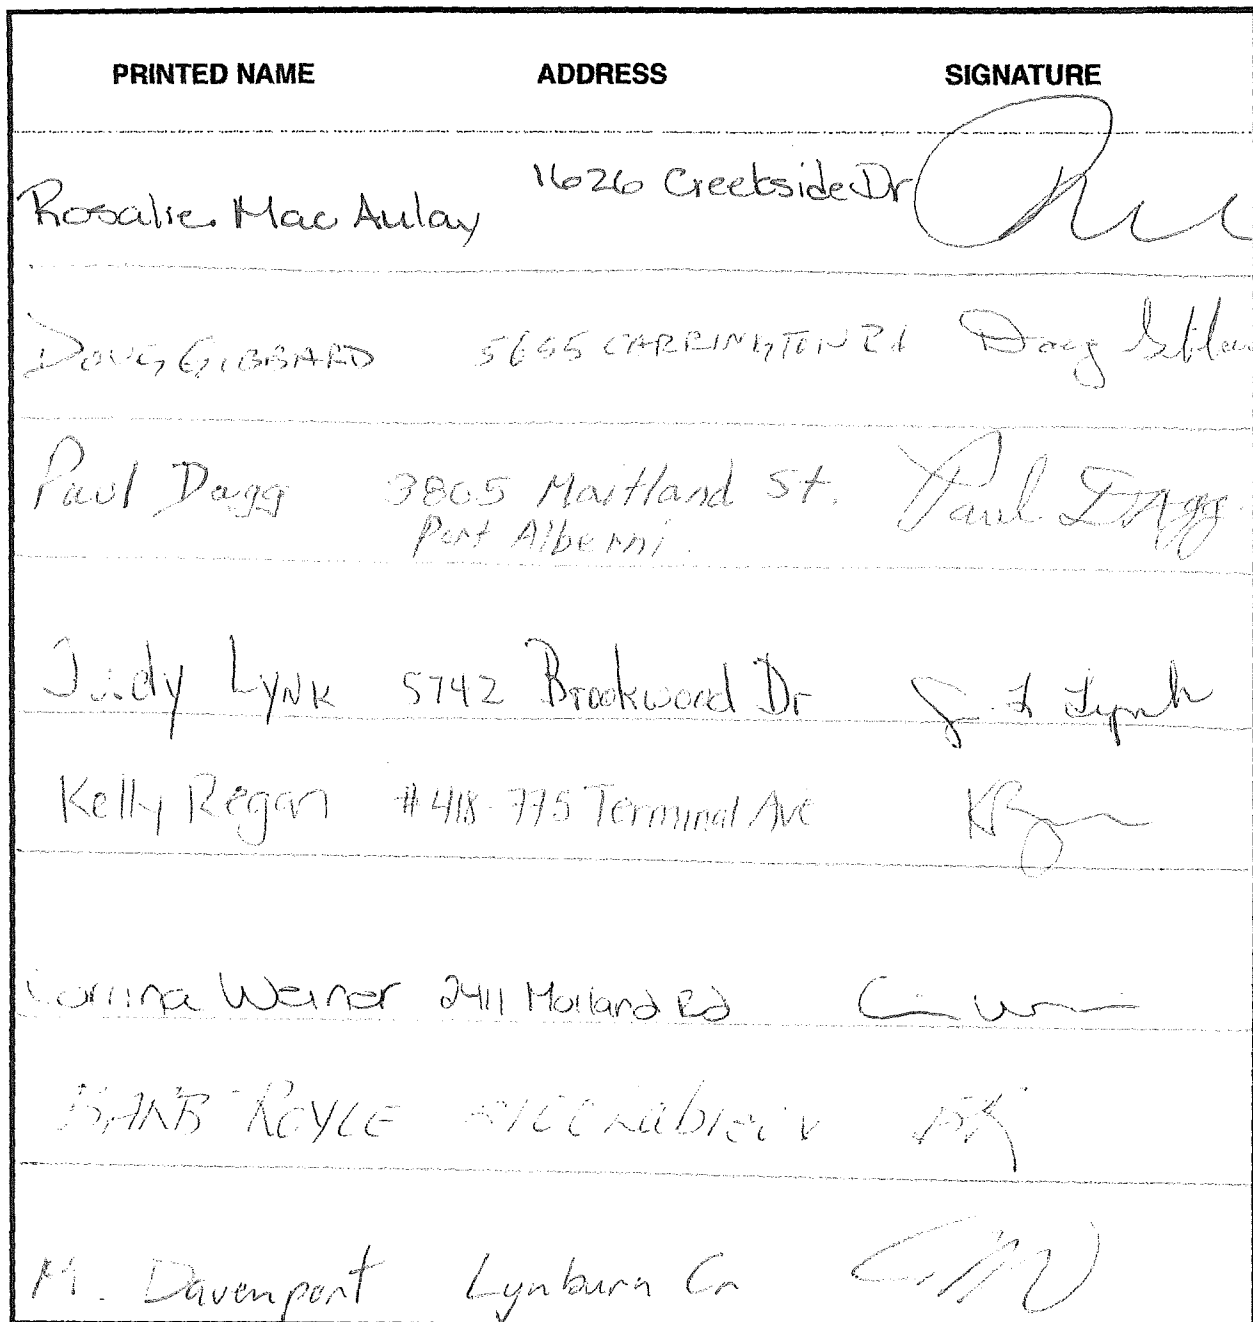 PRINTED NAME ADDRESS SIGNATURE
Rosalie MacAulay 1626 Creekside Dr
DOUG GIBBARD 5655 CARRINGTON Rd Doug
Paul Dagg 3805 Maitland St. Paul Dagg
Port Alberni.
Judy Lynk 5742 Brookwood Dr J. L Lynk
Kelly Regan #418-775 Terminal Ave
Corrina Weiner 2411 Rd
BARB ROYLE BR
M. Davenport Lynburn Cr